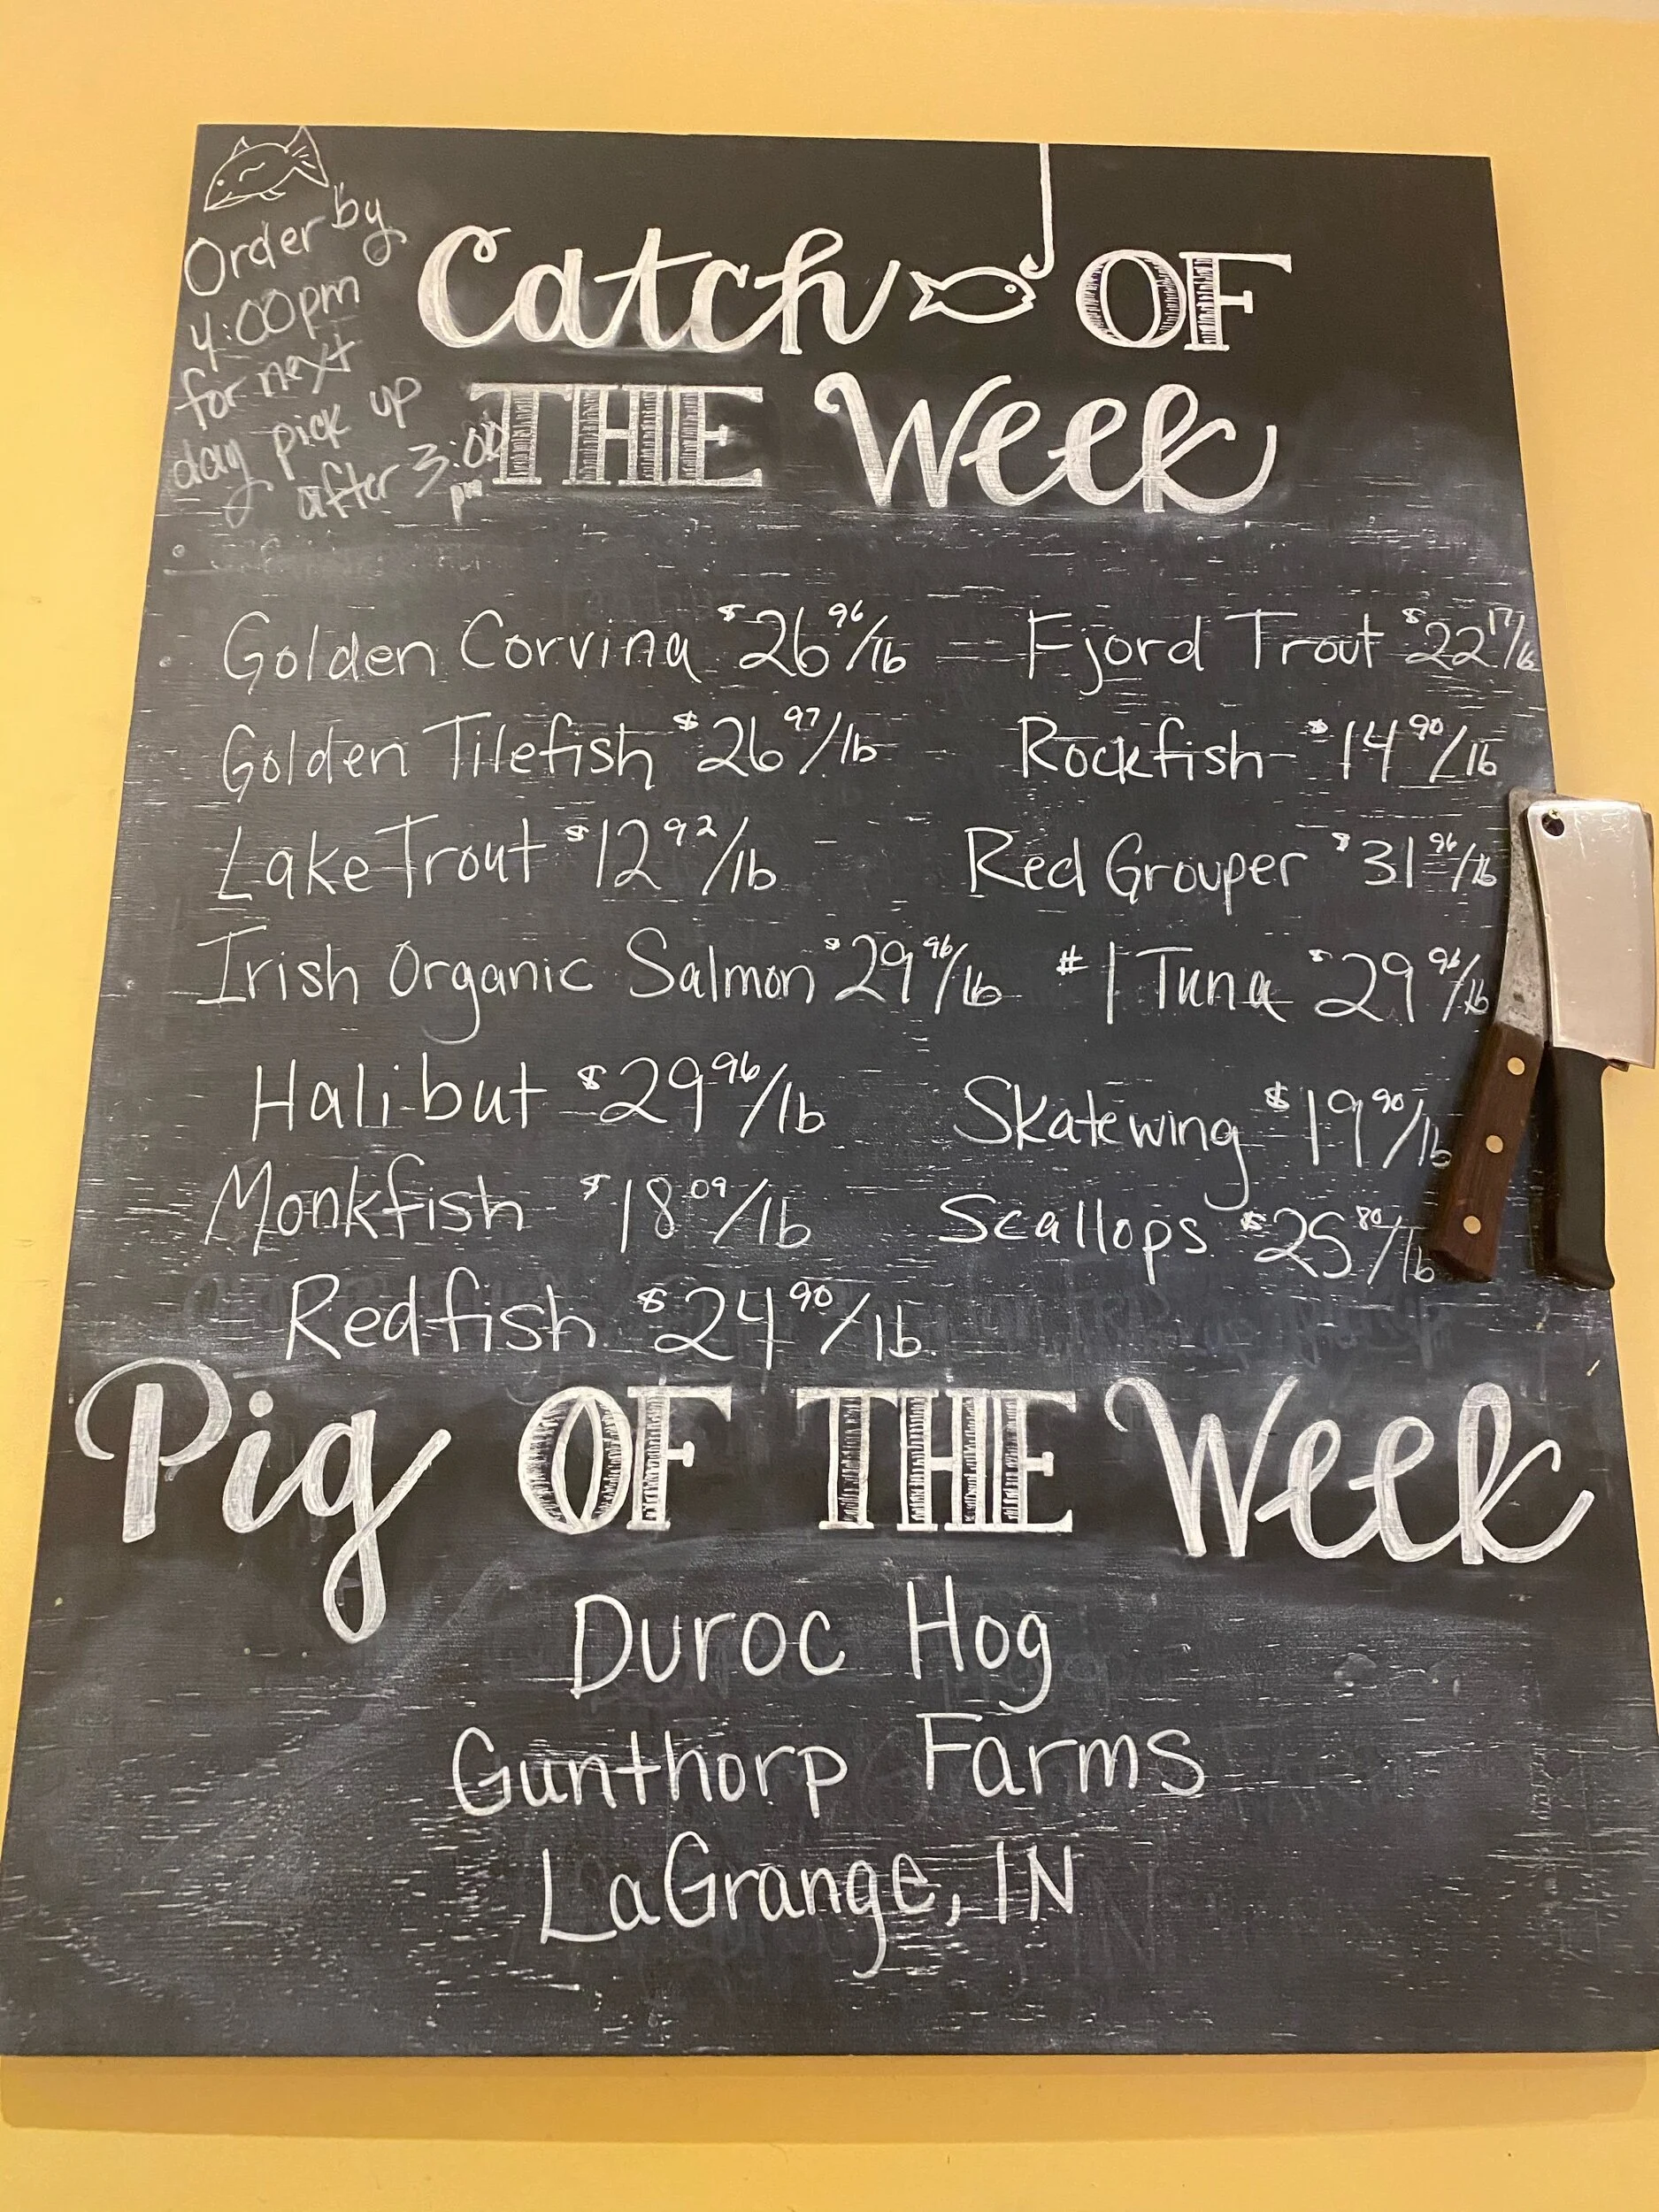 Order by
4:00pm
for next
day pick up
after 3:00
pm
Catch OF
THE Week
Golden Corvina $26 96/lb
Fjord Trout $22 17/lb
Golden Tilefish $26 97/lb
Rockfish $14 90/lb
Lake Trout $12 92/lb
Red Grouper $31 96/lb
Irish Organic Salmon $29 96/lb
#1 Tuna $29 96/lb
Halibut $29 96/lb
Skatewing $19 90/lb
Monkfish $18 09/lb
Scallops $25 80/lb
Redfish $24 90/lb
Pig OF THE Week
Duroc Hog
Gunthorp Farms
LaGrange, IN